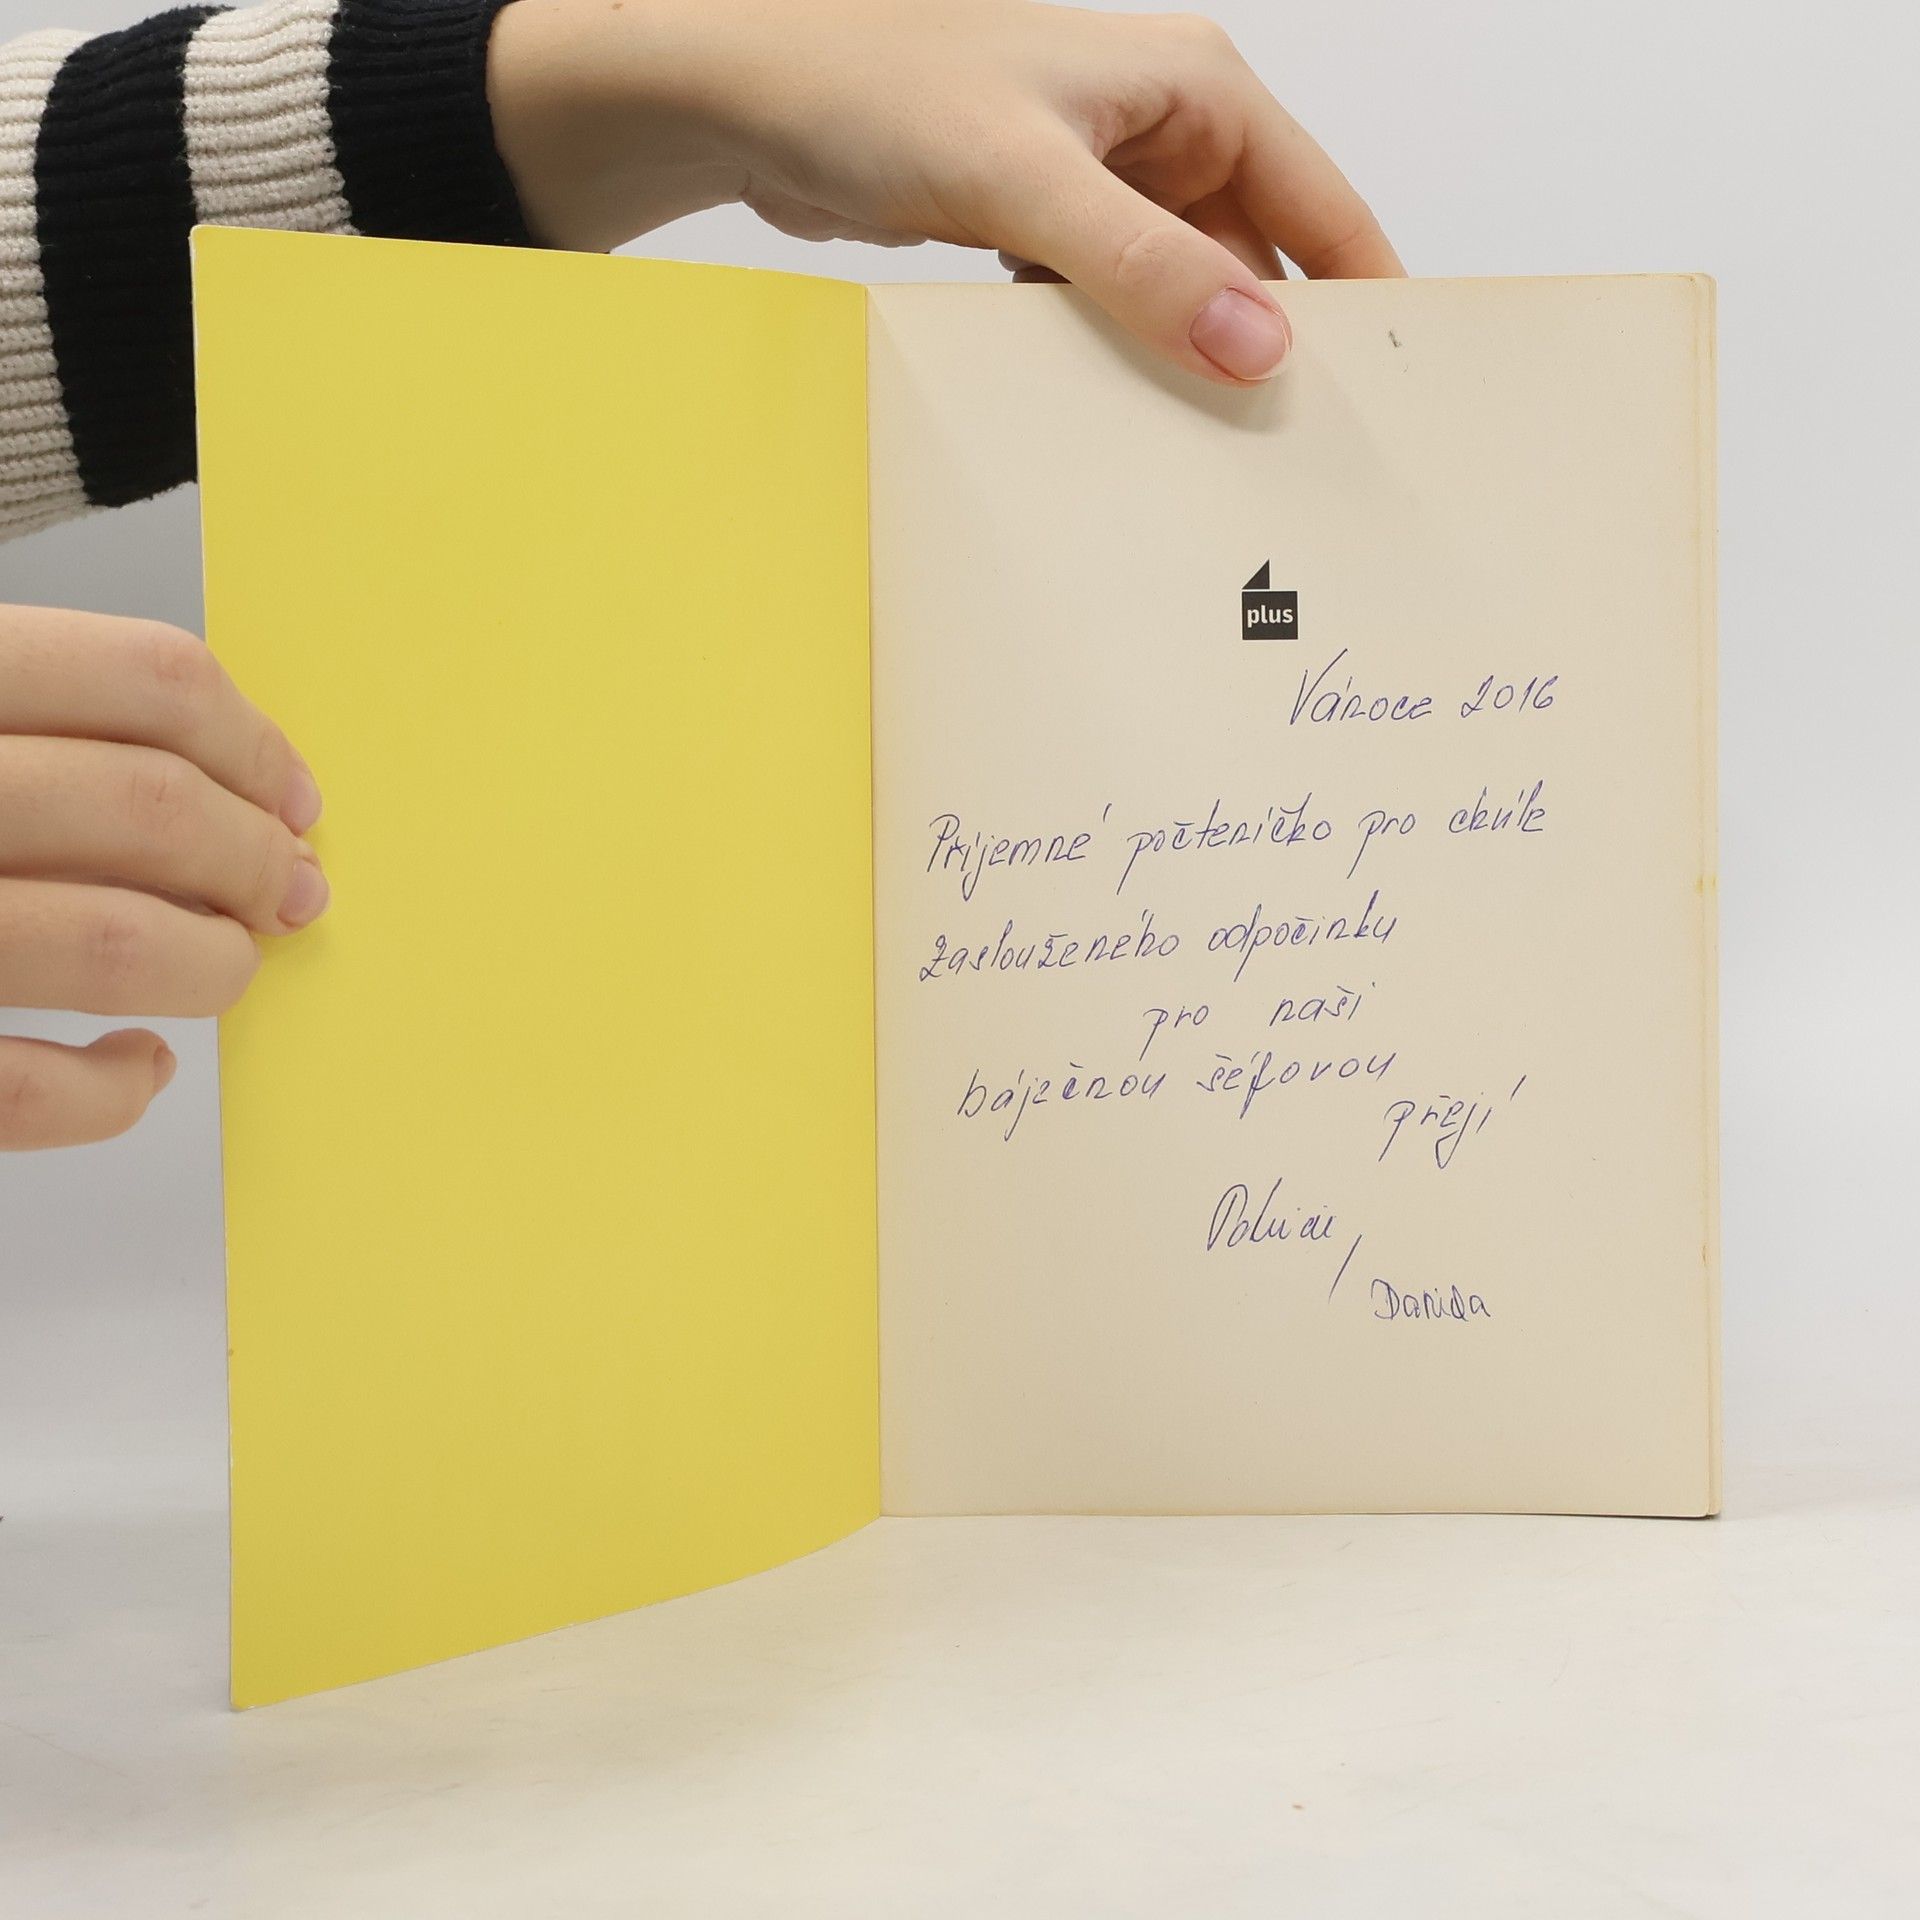 plus
Vánoce 2016
Příjemné počteníčko pro chvíle
zaslouženého odpočinku
pro naši
báječnou šéfovou
přejí
Danida